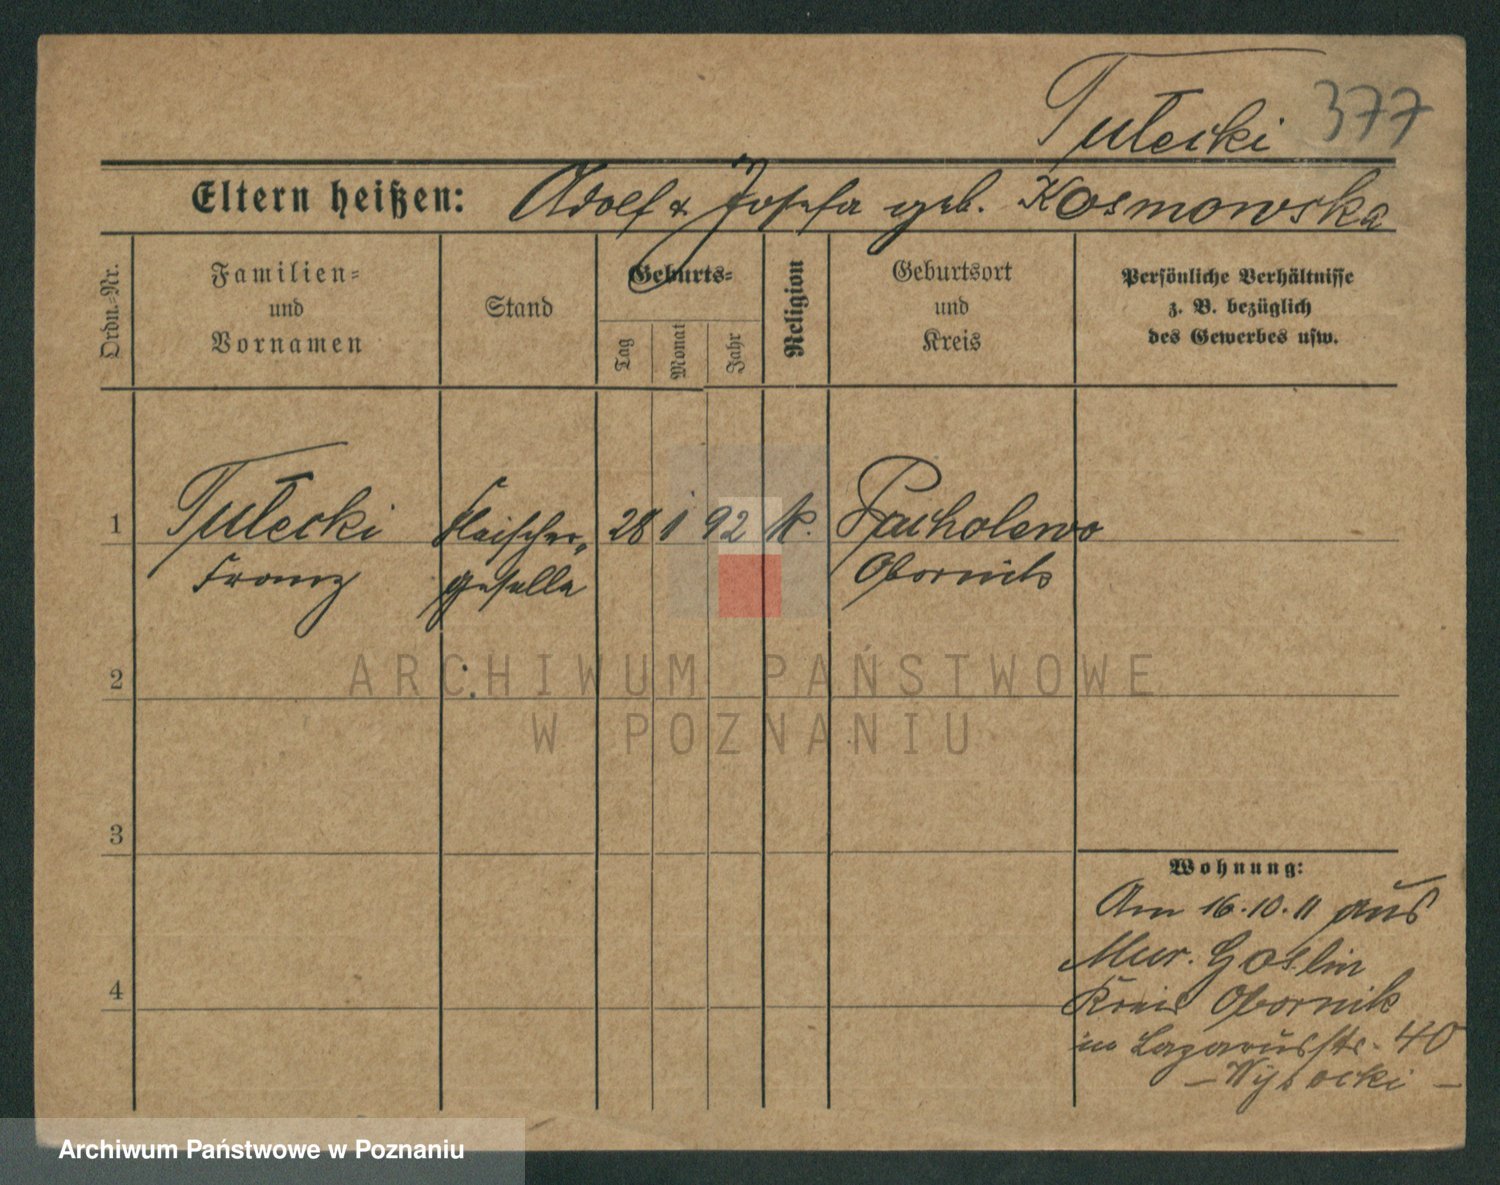 Tułecki 377
Eltern heißen: Adolf & Josefa geb. Kosmowska
Ordn.-Nr.
Familien-
und
Vornamen
Stand
Geburts-
Tag
Monat
Jahr
Religion
Geburtsort
und
Kreis
Persönliche Verhältnisse
z. B. bezüglich
des Gewerbes usw.
1 Tułecki Fleischer- 28 1 92 k. Pacholewo
Franz geselle Obornik
2
3
4
Wohnung:
Am 16.10.11 aus
Mur. Goslin
Kreis Obornik
in Lazarusstr. 40
- Wysocki -
ARCHIWUM PAŃSTWOWE
W POZNANIU
Archiwum Państwowe w Poznaniu